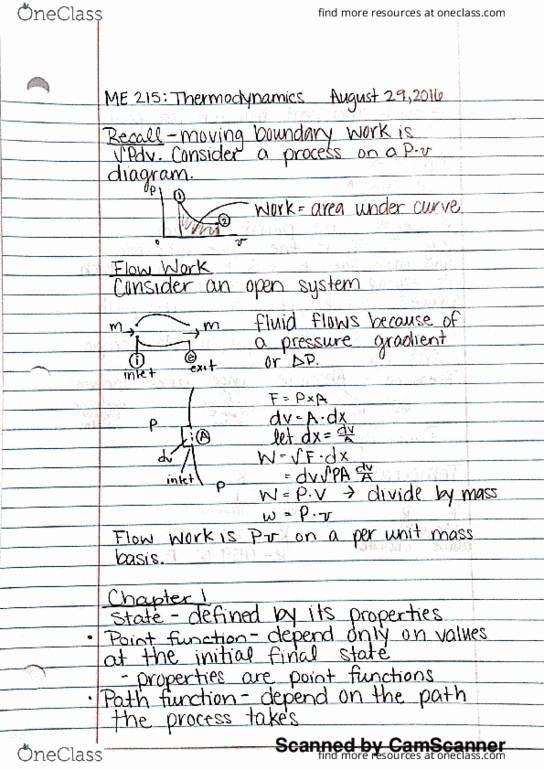 OneClass
find more resources at oneclass.com
ME 215: Thermodynamics August 29, 2016
Recall - moving boundary work is
∫Pdv. Consider a process on a P-v
diagram.
P
1
2
work = area under curve
v
Flow Work
Consider an open system
m
m
i
e
inlet
exit
fluid flows because of
a pressure gradient
or ΔP.
P
A
dv
inlet
P
F = P×A
dv = A·dx
let dx = dv/A
W = ∫F·dx
= dv∫PA dv/A
W = P·V → divide by mass
w = P·v
Flow work is Pv on a per unit mass
basis.
Chapter 1
State - defined by its properties
• Point function - depend only on values
at the initial final state
- properties are point functions
• Path function - depend on the path
the process takes
Scanned by CamScanner
OneClass
find more resources at oneclass.com